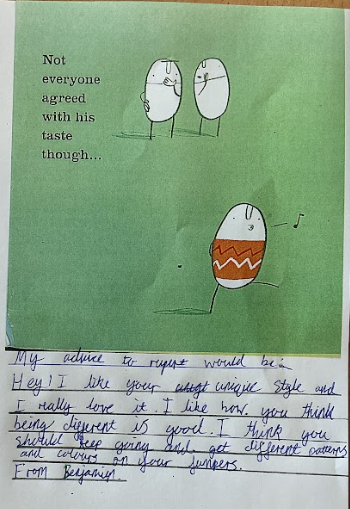 Not
everyone
agreed
with his
taste
though...
My advice to rupert would be:
Hey! I like your unique style and
I really love it. I like how you think
being different is good. I think you
should keep going and get different patterns
and colours on your jumpers.
From Benjamin.